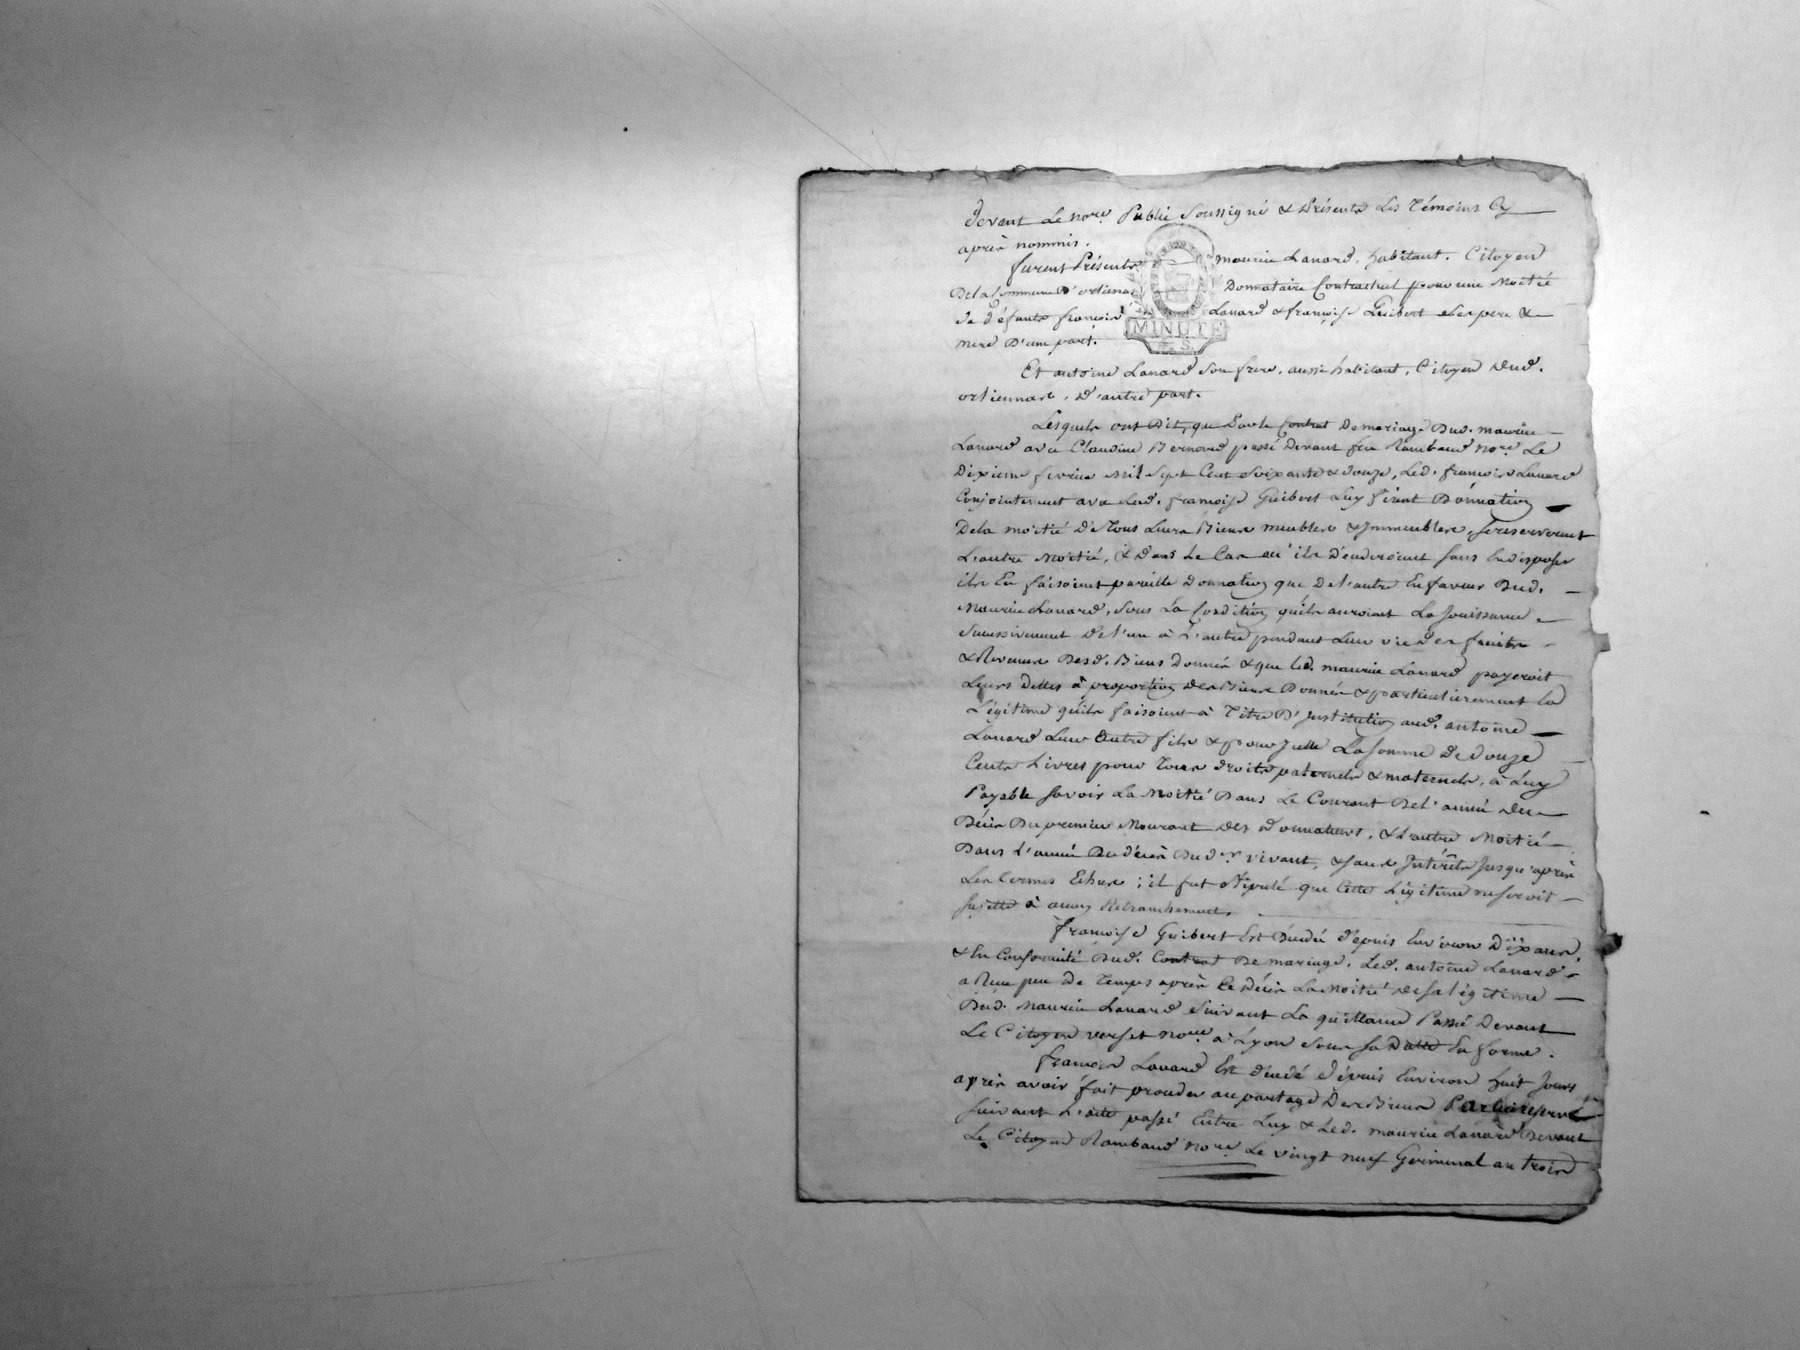 devant Le nore. Public Soussigné & Présents Les Témoins Cy
après nommés.
furent Présents maurice Lanard, habitant. Citoyen
De la Commune D'ortiennas Donnataire Contractuel pour une Moitié
de défunts françois Lanard & françoise Guibert ses pere &
mere D'une part.
MINUTE
Et antoine Lanard son frere, aussi habitant, Citoyen dud.
ortiennas, d'autre part.
Lesquels ont Dit, que Par le Contrat De mariage Dud. maurice
Lanard avec Claudine Bernard passé Devant feu Rambaud nore. Le
Dixieme fevrier Mil Sept Cent Soixante & douze, Led. françois Lanard
Conjointement avec Lad. françoise Guibert Luy firent Donnation
De la moitié De Tous Leurs Biens meubles & Immeubles, se reserverent
L'autre Moitié, & Dans Le Cas ou ils decederoient sans En disposer
ils En faisoient pareille donnation que De l'autre En faveur Dud.
Maurice Lanard, Sous La Condition qu'ils auroient La Jouissance
Successivement de l'un à L'autre pendant Leur vie des fruits
& Revenus Desd. Biens donnés & que led. maurice Lanard payeroit
Leurs dettes à proportion des Biens Donnés & particulierement la
Légitime qu'ils faisoient à Titre D'Institution aud. antoine
Lanard Leur autre fils & pour Icelle La somme de douze
Cents Livres pour Tous droits paternels & maternels, à Luy
Payable savoir La Moitié Dans Le Courant De l'année du
Décès Du premier Mourant des donnateurs, & L'autre Moitié
Dans L'année Du décès Dud.r vivant, & sans Intérêts Jusqu'après
Les Termes Echus ; il fut stipulé que Cette Légitime ne seroit
sujette à aucun Retranchement.
françoise Guibert Est Décédée depuis Environ Dix ans,
& En Conformité Dud. Contrat De mariage, Led. antoine Lanard
a Reçu peu De Temps après Ce Décès La Moitié de sa légitime
Dud. Maurice Lanard suivant La quittance Passée Devant
Le Citoyen verset nore à Lyon sous sa Datte En forme.
françois Lanard Est décédé depuis Environ huit Jours
après avoir fait proceder au partage Des Biens Par lui reservé
suivant L'acte passé Entre Luy & Led. maurice Lanard Devant
Le Citoyen Rambaud nore Le vingt neuf Germinal an trois